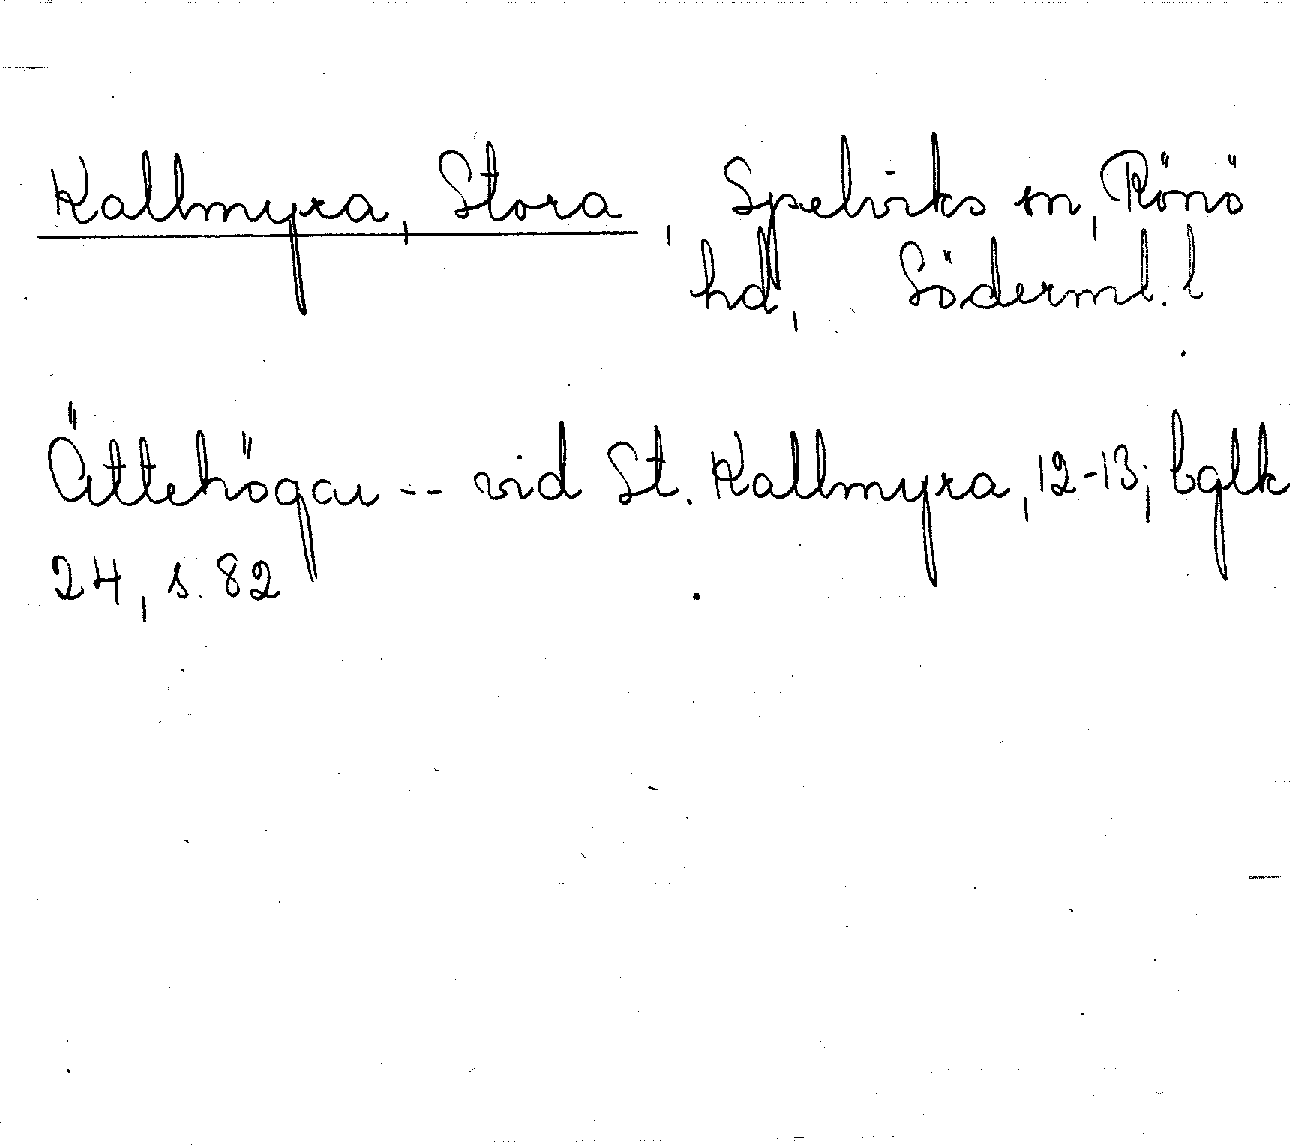 Kallmyra, Stora, Spelviks sn, Rönö
hd, Söderml. l
Ättehögar -- vid St. Kallmyra, 12-13; bglk
24, s. 82